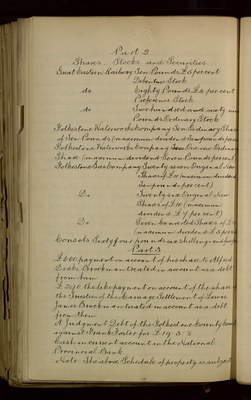 Part 2
Shares Stocks and Securities
Great Eastern Railway Ten Pounds £5 per cent
Debenture Stock
do Eighty Pounds £4 per cent
Preference Stock
do Two hundred and ninety
Pounds Ordinary Stock
Folkestone Waterworks Company Ten Ordinary Shares
of Ten Pounds (maximum dividend Ten pounds per
Folkestone Waterworks Company Ordinary
Share (maximum dividend Seven Pounds per cent)
Folkestone Gas Company Twenty seven Original
Shares of £10 (maximum dividend
Ten pounds per cent)
Do Twenty six Original New
Shares of £10 (maximum
dividend £7 per cent)
Do Seven Shares of £10
(maximum dividend £5
Consols Sixty four pounds six shillings and
Part 3
payment on account of his share to Alfred
Drake Brockman treated in account as a debt
from him
the like payment on account of the share of
the Trustees of the Marriage Settlement of Lewis
James Brockman treated in account as a debt
from them
A Judgment Debt of the Folkestone County Court
against Frank Parker for £19. 3. 2
Cash on current account in the National
Provincial Bank
Note The above Schedule of property is subject